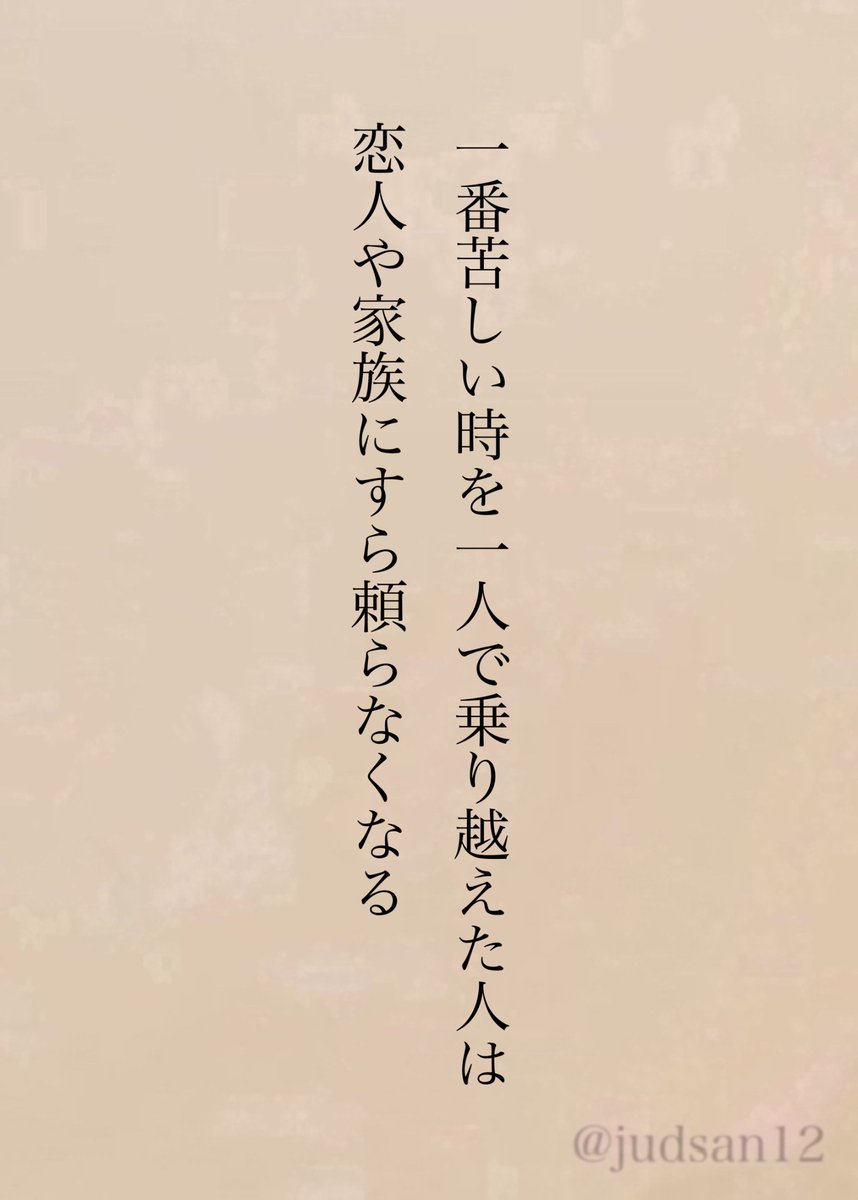 一番苦しい時を一人で乗り越えた人は
恋人や家族にすら頼らなくなる
@judsan12